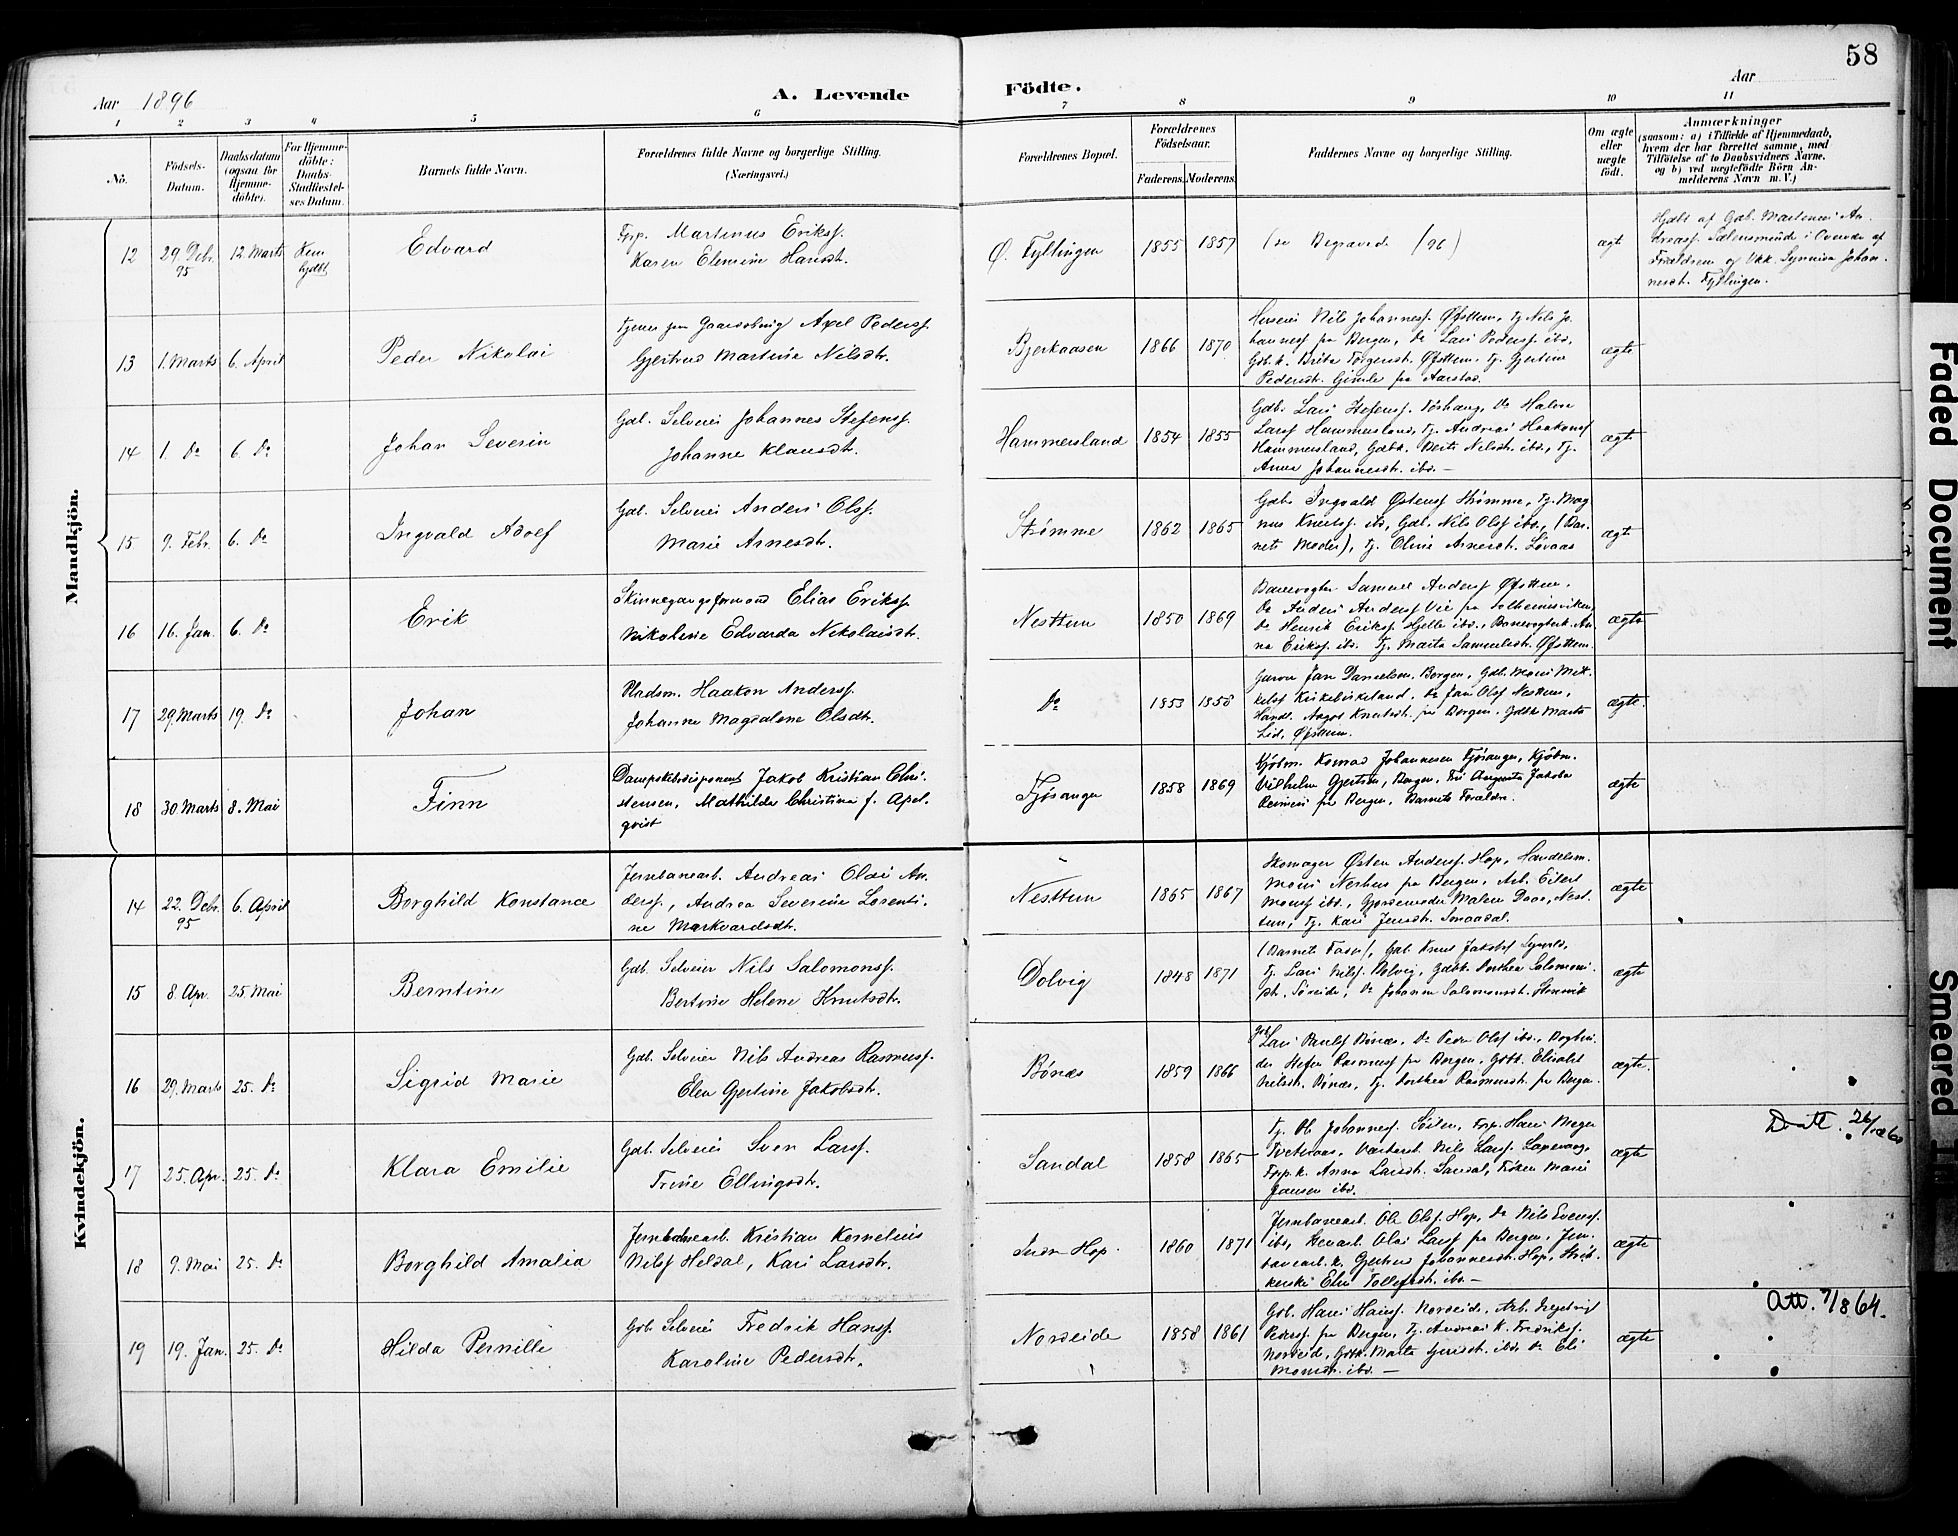 58
Aar 1896
A. Levende Födte.
Aar
1 2 3 4 5 6 7 8 9 10 11
No.
Födsels-Datum.
Daabsdatum (ogsaa for Hjemme-döbte).
For Hjemme-döbte: Daabs-Stadfæstel-ses Datum.
Barnets fulde Navn.
Forældrenes fulde Navne og borgerlige Stilling. (Næringsvei.)
Forældrenes Bopæl.
Forældrenes Födselsaar.
Faderens. Moderens.
Faddernes Navne og borgerlige Stilling.
Om ægte eller uægte födt.
Anmærkninger
(saasom: a) i Tilfælde af Hjemmedaab,
hvem der har forrettet samme, med
Tilföielse af to Daabsvidners Navne,
og b) ved uægtefödte Börn An-
melderens Navn m. V.)
Mandkjön.
12 29. Debr. 95 12. Marts Kun hjdbt Edvard
Fpp. Martinus Eriksf.
Karen Elemine Hansdt.
Ø. Fyllingen 1855 1857 (se Begravede /96) ægt
Hjdbt af Gdb. Martinus An-
dreasf. Sælensminde i Overvær af
Forældrene og Vkk. Synneva Johan-
nesdt. Fyllingen.
13 1. Marts 6. April Peder Nikolai
Axel Pedersf.
Gjertrud Martine Nilsdt.
Bjerkaasen 1866 1870
Nils Johannesf. Øfsttun, Tj. Nils Jo-
hannesf fra Bergen, Do Lars Pedersf. ibd.,
Gdb.k. Brita Torgersdt. Øfsttun, Tj. Gjertine
Pedersdt. Gimle fra Aarstad.
ægte
14 1. Do 6. Do Johan Severin
Gdb. Selveier Johannes Stefensf.
Johanne Klausdt.
Hammersland 1854 1855
Gdb. Lars Stefensf. Do
Larsf Hammersland, Tj. Andreas Haakonsf
Hammersland, Gdbk. Berte Nilsdt. ibd., Tj.
Anna Johannesdt. ibd. —
ægte
15 9. Febr. 6. Do Ingvald Adolf
Gdb. Selveier Anders Olsf.
Marie Arnesdt.
Strømme 1862 1865
Gdb. Ingvald Østensf Strømme, Tj. Mag-
nus Knutsf. ibd, Gdb. Nils Olsf ibd., (Bar-
nets Moder), Tj. Oline Arnesdt. Løvaas
ægte
16 16. Jan. 6. Do Erik
Skinnegangsformand Elias Eriksf.
Nikoline Edvarda Nikolaisdt.
Nesttun 1850 1869
Banevogter Samuel Andersf Øfsttun.
Do Anders Andersf Vie fra Solheimsviken,
Do Henrik Eriksf. Hjelle ibd., Banevogterk. An-
na Eriksf. ibd. Tj. Marta Samuelsdt. Øfsttun.
ægte
17 29. Marts 19. Do Johan
Pladsm. Haakon Andersf.
Johanne Magdalene Olsdt.
Do 1853 1858
Jan Danielsen Bergen, Gdb. Mons Mik-
kelsf Kirkebirkeland, Do Jan Olsf Nesttun,
Handl. Aagot Knutsdt. fra Bergen, Gdbk Marta
Lid, Øfsttun.
ægte.
18 30. Marts 8. Mai Finn
Dampskibsdisponent Jakob Kristian Chri-
stensen, Mathilde Christina f. Apel-
qvist
Fjøsanger 1858 1869
Kjøbm. Konrad Johannesen Fjøsanger, Kjøbm.
Vilhelm Gjertsen, Bergen, Fru Augusta Jakoba
fra Bergen, Barnets Forældre.
ægte
Kvindekjön.
14 22. Debr. 95 6. April Borghild Konstance
Jernbanearb. Andreas Olai An-
dersf., Andrea Severine Lorenti-
ne Markvardsdt.
Nesttun 1865 1867
Skomager Østen Andersf. Hop, Handelsm.
Mons Neshus fra Bergen, Arb. Eilert
Monsf ibd., Gjordemoder Malene Daae, Nest-
tun, Tj. Kari Jensdt. Smaadal.
ægte
15 8. Ap. 25. Mai Berntine
Gdb. Selveier Nils Salomonsf.
Bertine Helene Knutsdt.
Dolvig 1848 1871
(Barnets Fader), Gdb. Knut Jakobsf
Tj. Lars Nilsf. Dolvig, Gdbk. Dorthea Salomons-
dt. Søreide, Do Johanne Salomonsdt.
ægte
16 29. Marts 25. Do Sigrid Marie
Gdb. Selveier Nils Andreas Rasmusf.
Elen Gjertine Jakobsdt.
Bønæs 1859 1866
Gdb. Lars Bønæs, Do Peder Olsf ibd., Bogbin-
der Stefen Rasmusf fra Bergen, Gdbk. Elisabet
Nilsdt. Bønæs, Tj. Dorthea Rasmusdt. fra Bergen.
ægte.
17 25. Ap. 25. Do Klara Emilie
Gdb. Selveier Sven Larsf.
Trine Ellingsdt.
Sandal 1858 1865
Tj. Ole Johannesf. Fpp. Hans Mager
Tveteraas, Værkarb. Nils Larsf.
Fpp.k. Anna Larsdt. Sandal, Frøken Marie
Jansen ibd.
ægte
Datt. 26/10 60
18 9. Mai 25. Do Borghild Amalia
Jernbanearb. Kristian Kornelius
Nilsf Heldal, Kari Larsdt.
Indre Hop. 1860 1871
Jernbanearb. Ole Olsf. Hop, Do Nils Evensf.
ibd, Olai Larsf fra Bergen, Jern-
banearb.k. Gjertrud Johannesdt. Hop,
Eli Tollefsdt. ibd. —
ægte
19 19. Jan. 25. Do Hilda Pernille
Gdb. Selveier Fredrik Hansf.
Karoline Pedersdt.
Nordeide 1858 1861
Gdb. Hans Hansf. Nordeide, Arb. Ingebrigt
Pedersf. fra Bergen, Tj. Andreas K. Fredriksf.
Nordeid, Gdbk. Marta ibd. Do Eli
Monsdt. ibd. —
ægte
Att. 7/8 64.
Faded Document
Smeared Ink